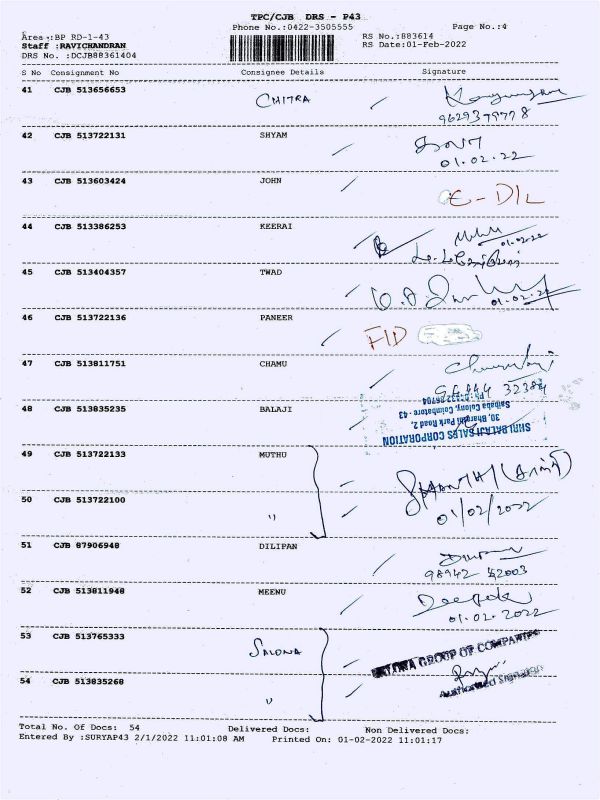 TPC/CJB DRS - P43
Phone No.:0422-3505555 Page No.:4
Area :BP RD-1-43 RS No.:883614
Staff :RAVICHANDRAN RS Date:01-Feb-2022
DRS No. :DCJB88361404
S No Consignment No Consignee Details Signature
41 CJB 513656653 CHITRA
9629379778
42 CJB 513722131 SHYAM
01.02.22
43 CJB 513603424 JOHN
44 CJB 513386253 KEERAI
01.02.22
45 CJB 513404357 TWAD
01.02.22
46 CJB 513722136 PANEER
47 CJB 513811751 CHAMU
48 CJB 513835235 BALAJI
SHRI BALAJI SALES CORPORATION
30, Bharathi Park Road 2,
Saibaba Colony, Coimbatore -43
49 CJB 513722133 MUTHU
SHANTHI
50 CJB 513722100 "
01/02/2022
51 CJB 87906948 DILIPAN
98942 42003
52 CJB 513811948 MEENU
Deepak
01.02.2022
53 CJB 513765333 SALONA
GROUP OF COMPANIES
54 CJB 513835268 "
Authorised Signatory
Total No. Of Docs: 54 Delivered Docs: Non Delivered Docs:
Entered By :SURYAP43 2/1/2022 11:01:08 AM Printed On: 01-02-2022 11:01:17